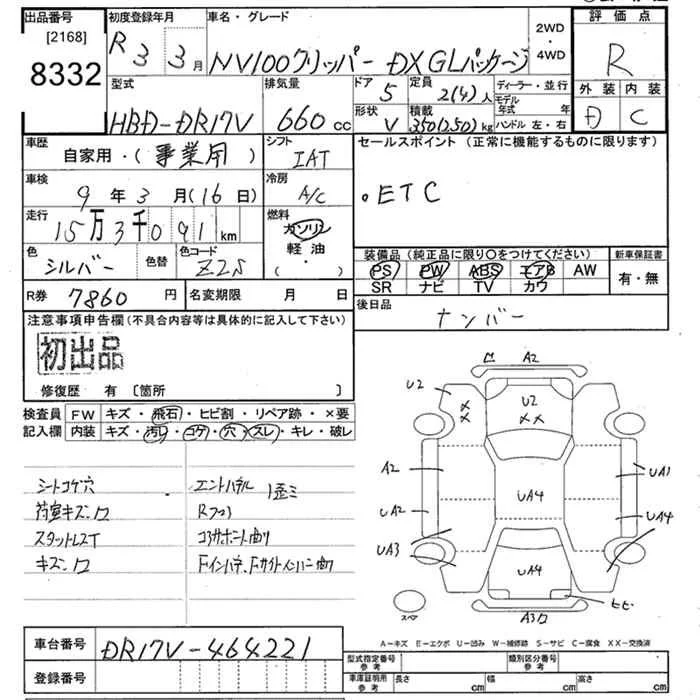 出品番号
[2168]
8332
初度登録年月
R 3 3月
車名・グレード
NV100クリッパー DX GLパッケージ
2WD
・
4WD
評価点
R
外装 内装
D C
型式
HBD-DR17V
排気量
660 cc
ドア
5
定員
2(4)人
形状
V
積載
350(250)kg
ディーラー・並行
モデル
年式 年
ハンドル 左・右
車歴
自家用・(事業用)
シフト
IAT
セールスポイント (正常に機能するものに限ります)
。ETC
車検
9年3月(16日)
冷房
A/C
走行
15万3千091km
燃料
ガソリン
軽油
(・)
色
シルバー
色替
色コード
Z2S
装備品(純正品に限り○をつけてください)
新車保証書
PS PW ABS エアB AW
SR ナビ TV カワ
有・無
R券 7860円
名変期限 月 日
後日品
ナンバー
注意事項申告欄(不具合内容等は具体的に記入して下さい)
初出品
修復歴 有〔箇所 〕
検査員
記入欄
FW キズ・飛石・ヒビ割・リペア跡・×要
内装 キズ・汚れ・コゲ・穴・スレ・キレ・破レ
シートコゲ穴
荷室キズ
スタットレスT
キズ
エンドパネル 歪ミ
コアサポート曲り
Fインパネ、Fサイドメンバー曲り
A2
U2
U2
XX
XX
A2
UA1
UA2
UA4
UA4
UA3
UA4
ヒビ
A3
スペア
A-キズ E-エクボ U-凹み W-補修跡 S-サビ C-腐食 XX-交換済
車台番号
DR17V-464221
登録番号
型式指定番号
参考
類別区分番号
参考
車庫証明用
参考
長さ cm
幅 cm
高さ cm